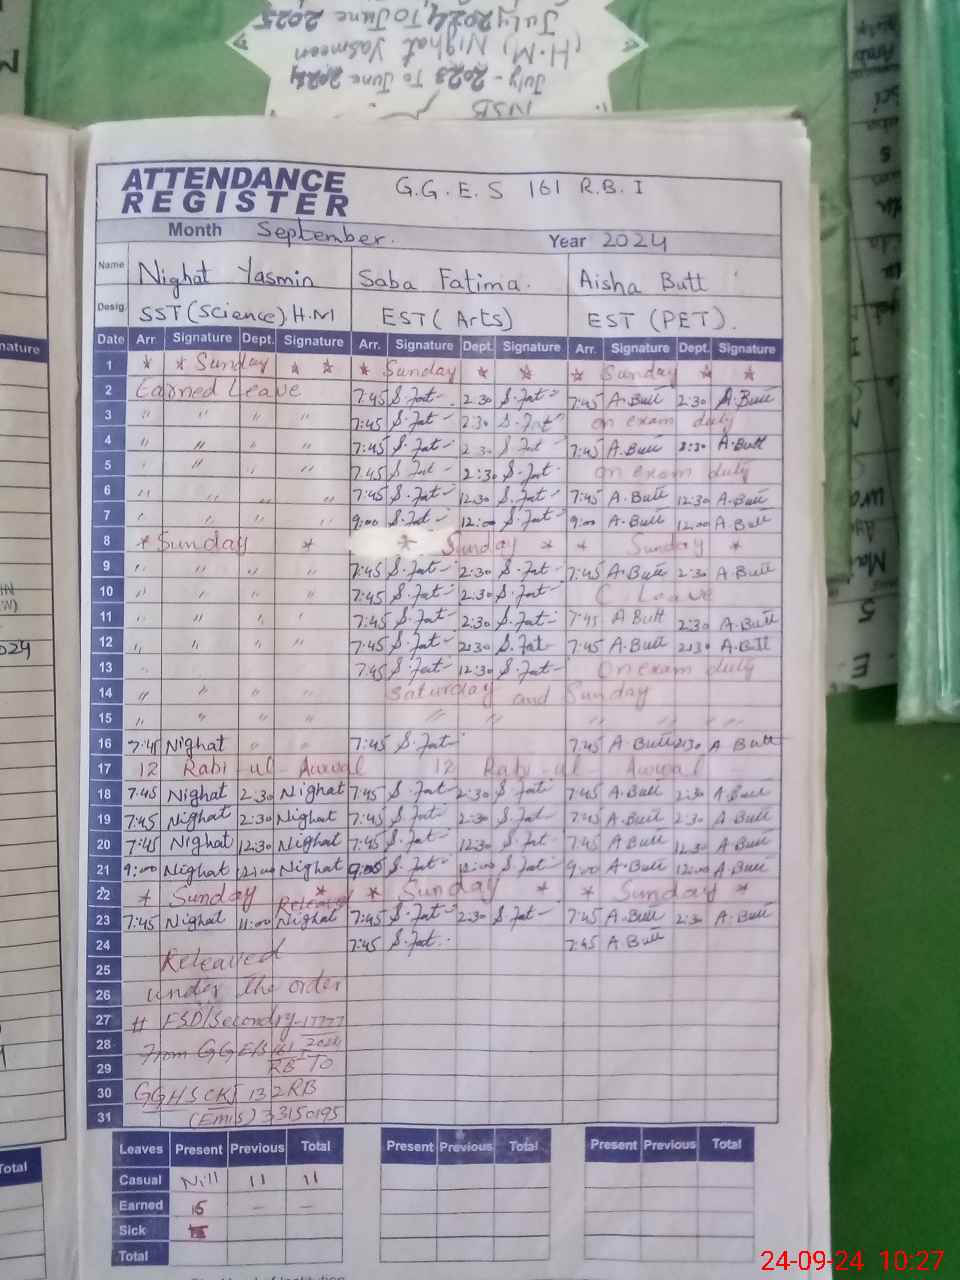 July 2024 To June 2025
(H.M) Nighat Yasmeen
July - 2023 To June 2024
NSB
ATTENDANCE REGISTER
G.G.E.S 161 R.B.I
Month September. Year 2024
Name Nighat Yasmin Saba Fatima. Aisha Butt
Desig. SST (Science) H.M EST (Arts) EST (PET).
Date Arr. Signature Dept. Signature Arr. Signature Dept. Signature Arr. Signature Dept. Signature
1 * * Sunday * * * Sunday * * * Sunday * *
2 Earned Leave 7:45 S.Fat 2:30 S.Fat 7:45 A.Butt 2:30 A.Butt
3 " " " " 7:45 S.Fat 2:30 S.Fat on exam duty
4 " " " " 7:45 S.Fat 2:30 S.Fat 7:45 A.Butt 2:30 A.Butt
5 " " " " 7:45 S.Fat 2:30 S.Fat on exam duty
6 " " " " 7:45 S.Fat 12:30 S.Fat 7:45 A.Butt 12:30 A.Butt
7 " " " " 9:00 S.Fat 12:00 S.Fat 9:00 A.Butt 12:00 A.Butt
8 * Sunday * * Sunday * * Sunday *
9 " " " " 7:45 S.Fat 2:30 S.Fat 7:45 A.Butt 2:30 A.Butt
10 " " " " 7:45 S.Fat 2:30 S.Fat C. Leave
11 " " " " 7:45 S.Fat 2:30 S.Fat 7:45 A Butt 2:30 A.Butt
12 " " " " 7:45 S.Fat 2:30 S.Fat 7:45 A.Butt 2:30 A.Butt
13 " " " 7:45 S.Fat 12:30 S.Fat On exam duty
14 " " " " Saturday and Sunday
15 " " " " " " " " " "
16 7:45 Nighat " " 7:45 S.Fat 7:45 A.Butt 2:30 A Butt
17 12 Rabi-ul-Awwal 12 Rabi-ul-Awwal
18 7:45 Nighat 2:30 Nighat 7:45 S.Fat 2:30 S.Fat 7:45 A.Butt 2:30 A.Butt
19 7:45 Nighat 2:30 Nighat 7:45 S.Fat 2:30 S.Fat 7:45 A.Butt 2:30 A.Butt
20 7:45 Nighat 12:30 Nighat 7:45 S.Fat 12:30 S.Fat 7:45 A Butt 12:30 A.Butt
21 9:00 Nighat 12:00 Nighat 9:00 S.Fat 12:00 S.Fat 9:00 A.Butt 12:00 A.Butt
22 * Sunday * * Sunday * * Sunday *
Released
23 7:45 Nighat 11:00 Nighat 7:45 S.Fat 2:30 S.Fat 7:45 A.Butt 2:30 A.Butt
24 7:45 S.Fat 7:45 A Butt
25 Released
26 under the order
27 # FSD/Secondry-17777
28 From GGES 161 2024
29 RB TO
30 GGHSCKJ 132RB
31 (Emis) 33150195
Leaves Present Previous Total Present Previous Total Present Previous Total
Casual Nill 11 11
Earned 15 - -
Sick
Total
24-09-24 10:27